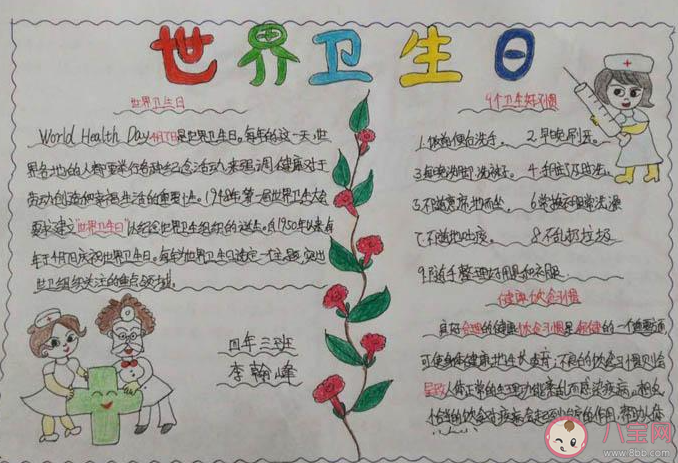 世界卫生日
世界卫生日
World Health Day 4月7日是世界卫生日。每年的这一天,世
界各地的人都要举行各种纪念活动,来强调健康对于
劳动创造和幸福生活的重要性。1948年第一届世界卫生大会
建立"世界卫生日"以纪念世界卫生组织的诞生。自1950年以来每
年于4月7日庆祝世界卫生日。每年为世界卫生日选定一个主题,突出
世卫组织关注的重点领域。
四年三班
李翰峰
9个卫生好习惯
1.饭前便后洗手。 2.早晚刷牙。
3.每晚洗脚、洗袜子。 4.
5.不随意席地而坐。 6.
7.不随地吐痰。 8.不乱扔垃圾
9.随手整理好用具和衣服
健康饮食习惯
良好合理的健康饮食习惯是保健的一个重要方面
可使身体健康地生长、发育;不良的饮食习惯则会
导致人体正常的生理功能紊乱而感染疾病。相反
恰当的饮食对疾病会起到治疗的作用,帮助人体
八宝网
www.8bb.com